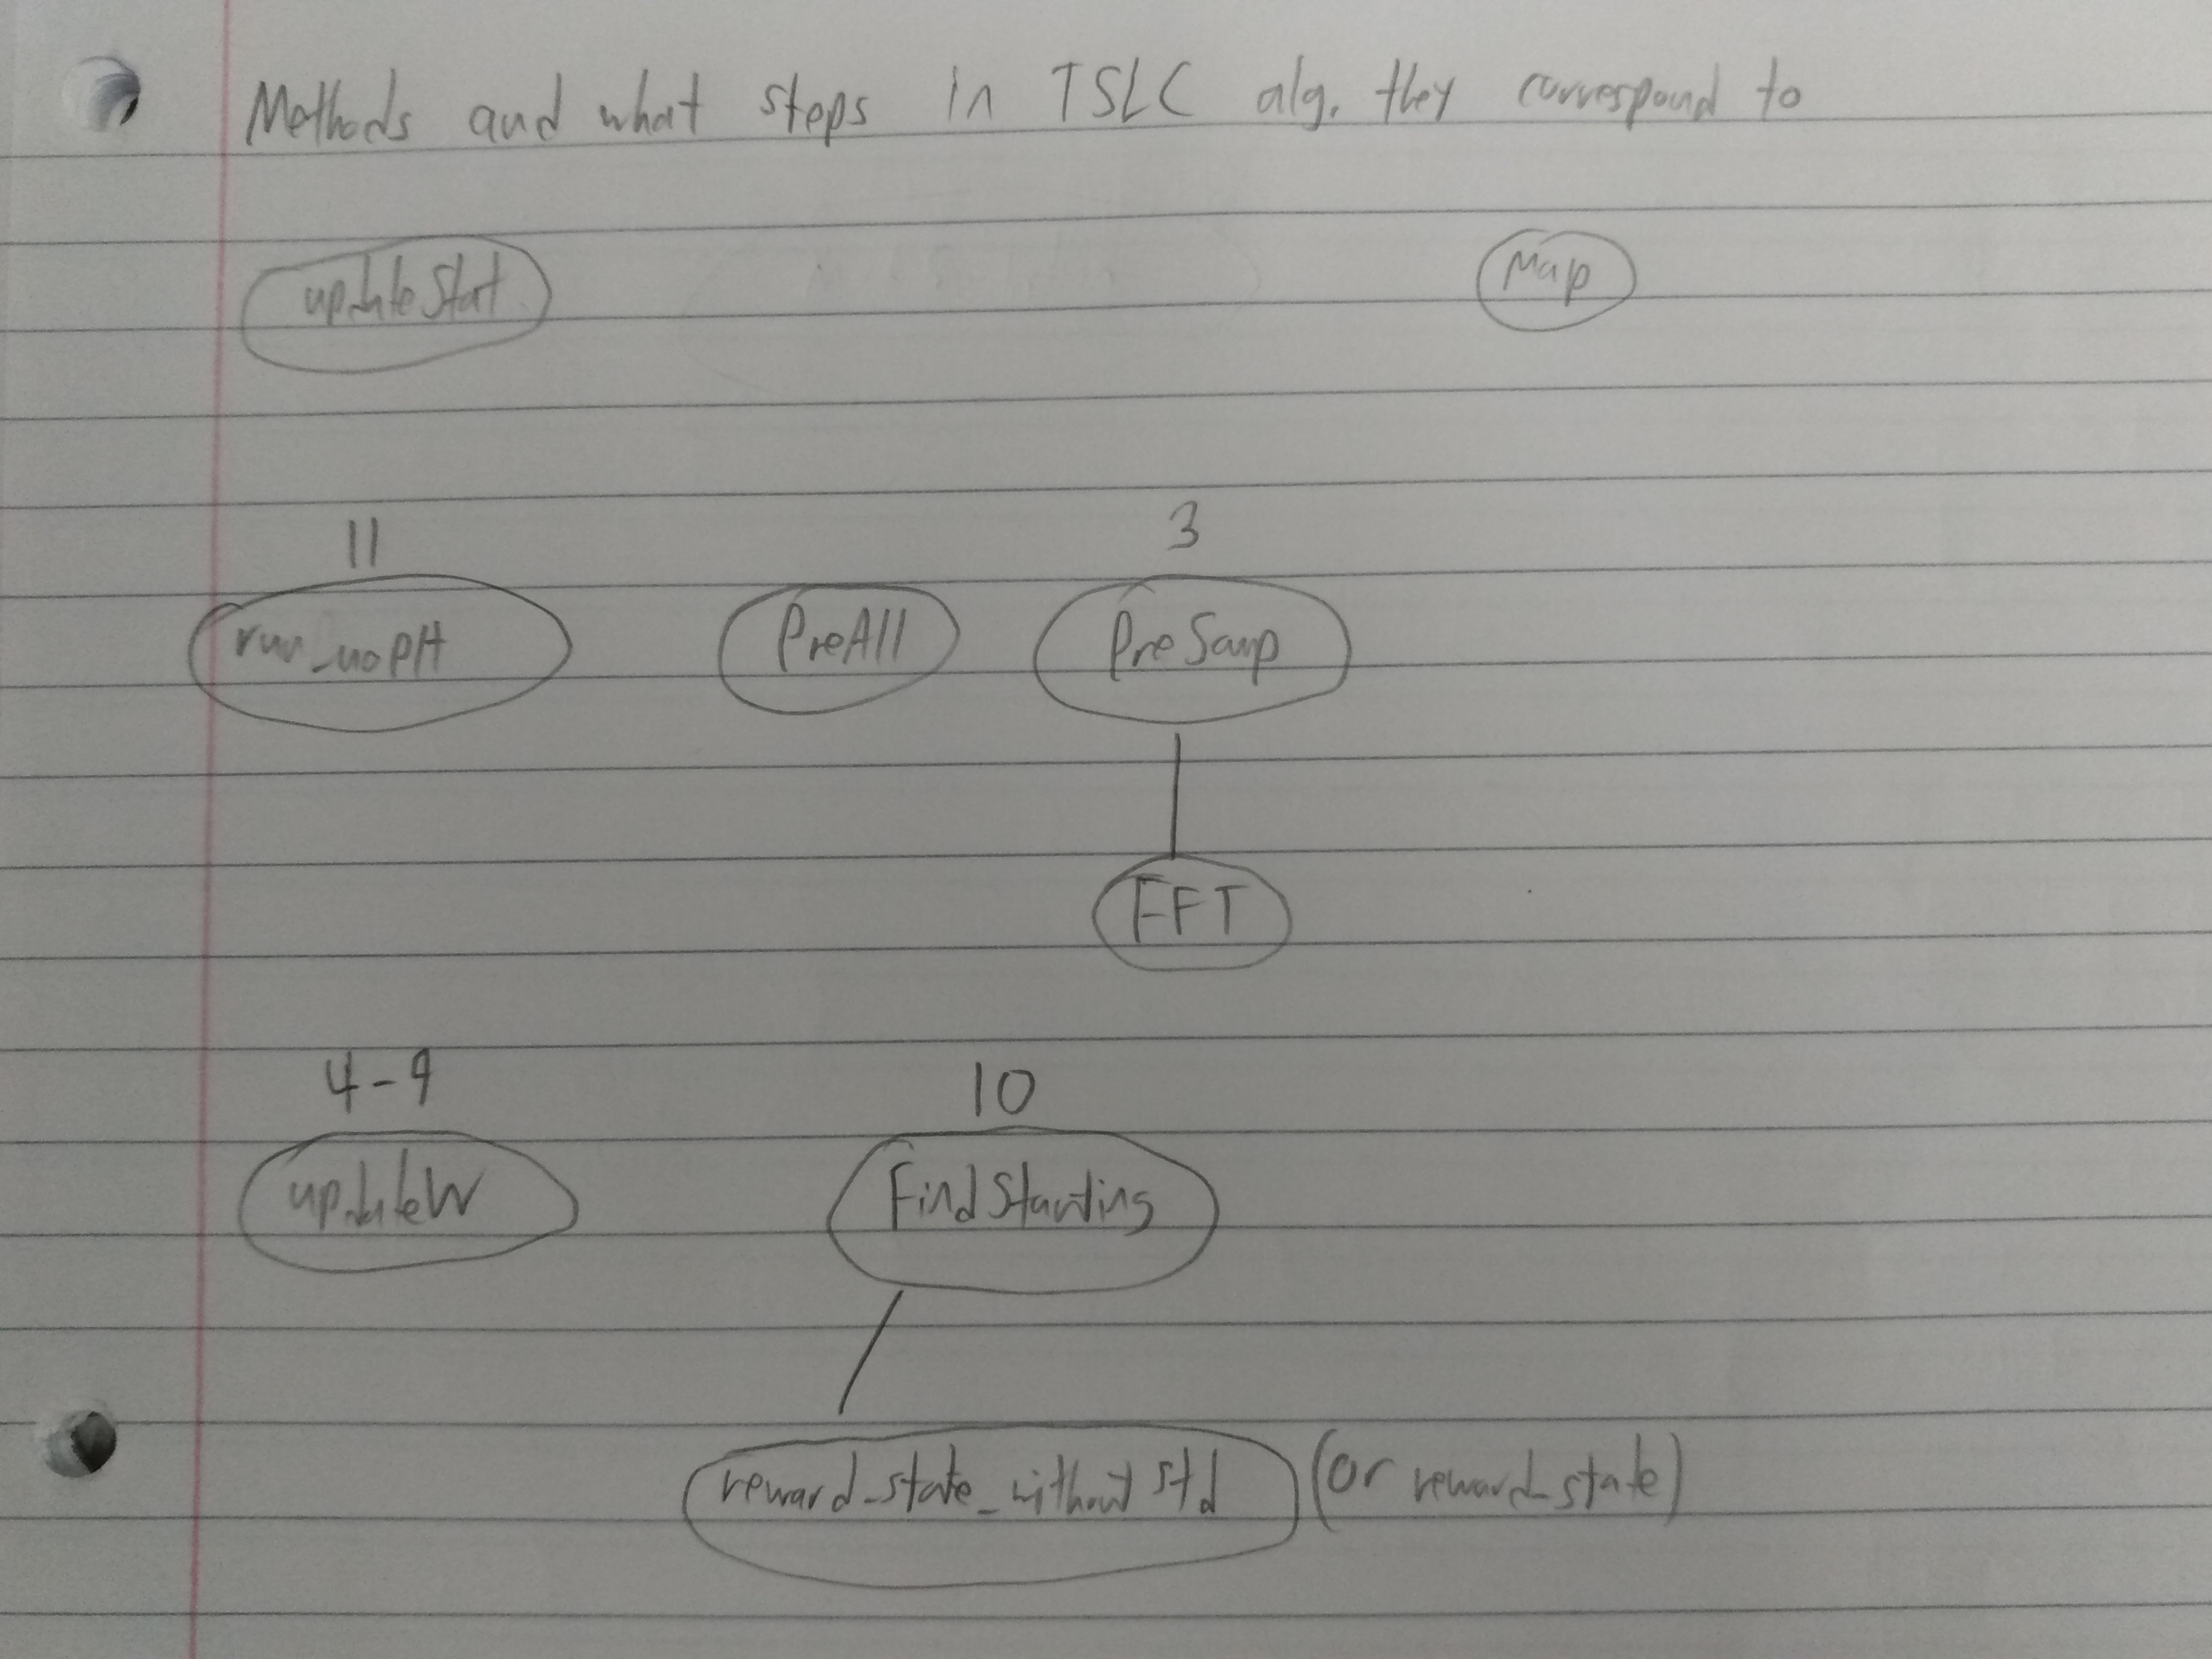 Methods and what steps in TSLC alg. they correspond to
updateStat Map
11 3
run_noPH PreAll PreSamp
FFT
4-9 10
updateW FindStarting
reward_state_without std (or reward_state)